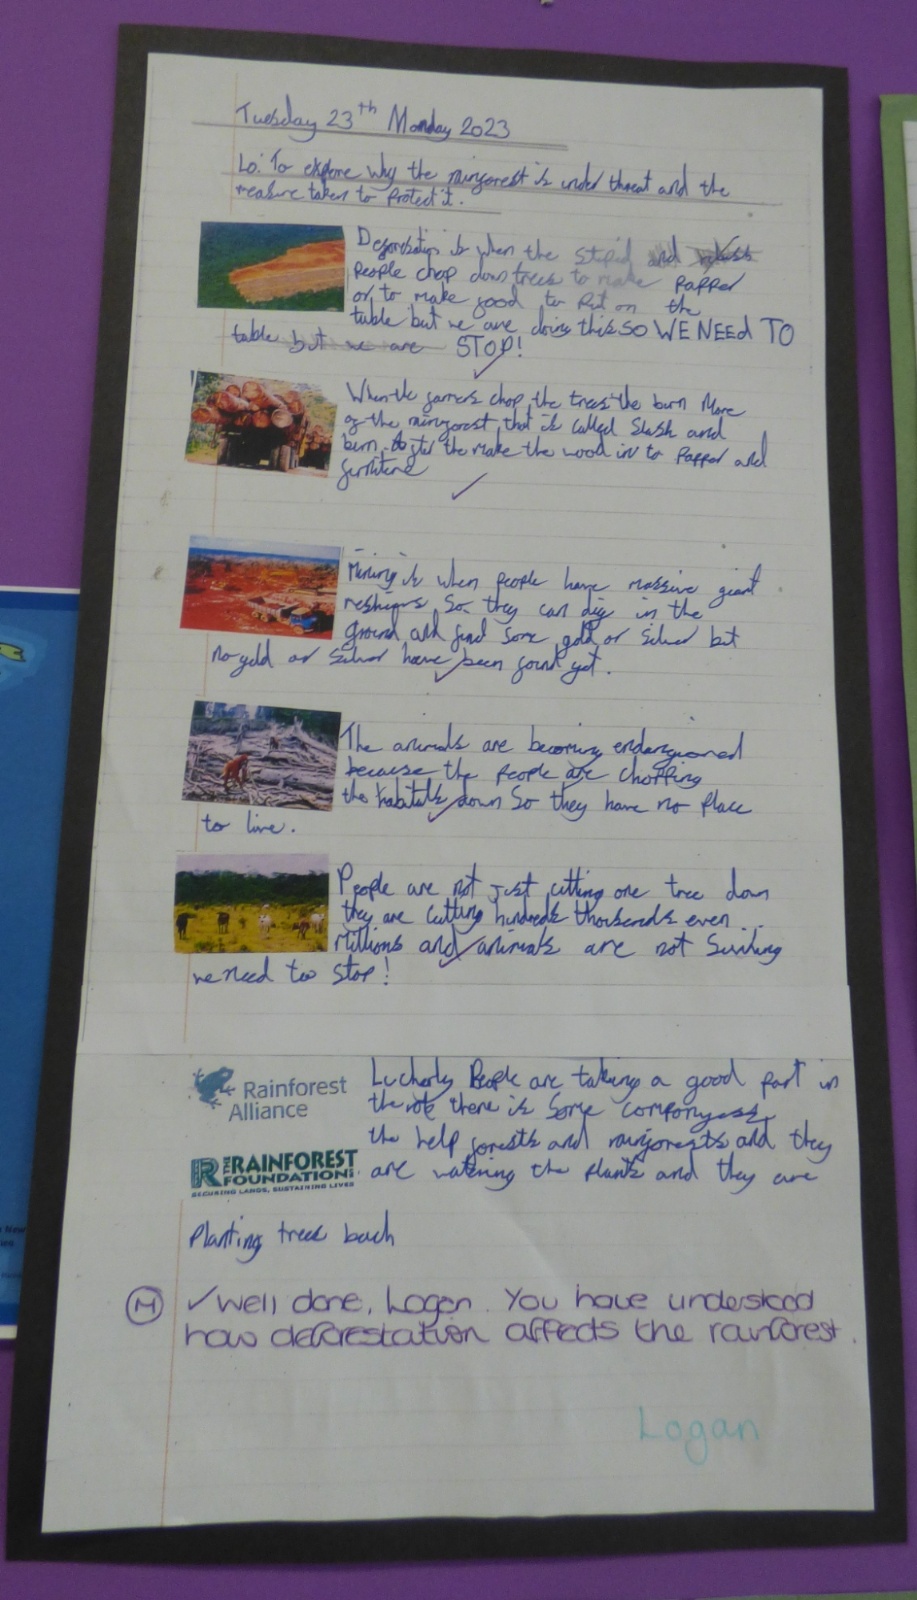 Tuesday 23th Monday 2023
Lo: To explore why the rainforest is under threat and the
measure taken to Protect it.
is when the stupid and
People chop down trees to make Papper
or to make food to Put on the
table but we are doing this SO WE NEED TO
table but we are STOP!
When the farmers chop the trees the burn More
of the rainforest that is called Slash and
burn. After the make the wood in to Papper and
Mining is when people have massive giant
So they can dig in the
ground and find some gold or Silver but
no gold or Silver have been found yet.
The animals are becoming
because the People are chopping
the down So they have no Place
to live.
People are not just cutting one tree down
they are cutting hundreds thousands even
Millions and animals are not
we need to stop!
Rainforest
Alliance
Lucherly People are taking a good part in
the there is Some
THE RAINFOREST
FOUNDATION
SECURING LANDS, SUSTAINING LIVES
the help forests and rainforests and they
are watering the plants and they are
Planting trees bach
M ✓ Well done, Logan. You have understood
how deforestation affects the rainforest.
Logan